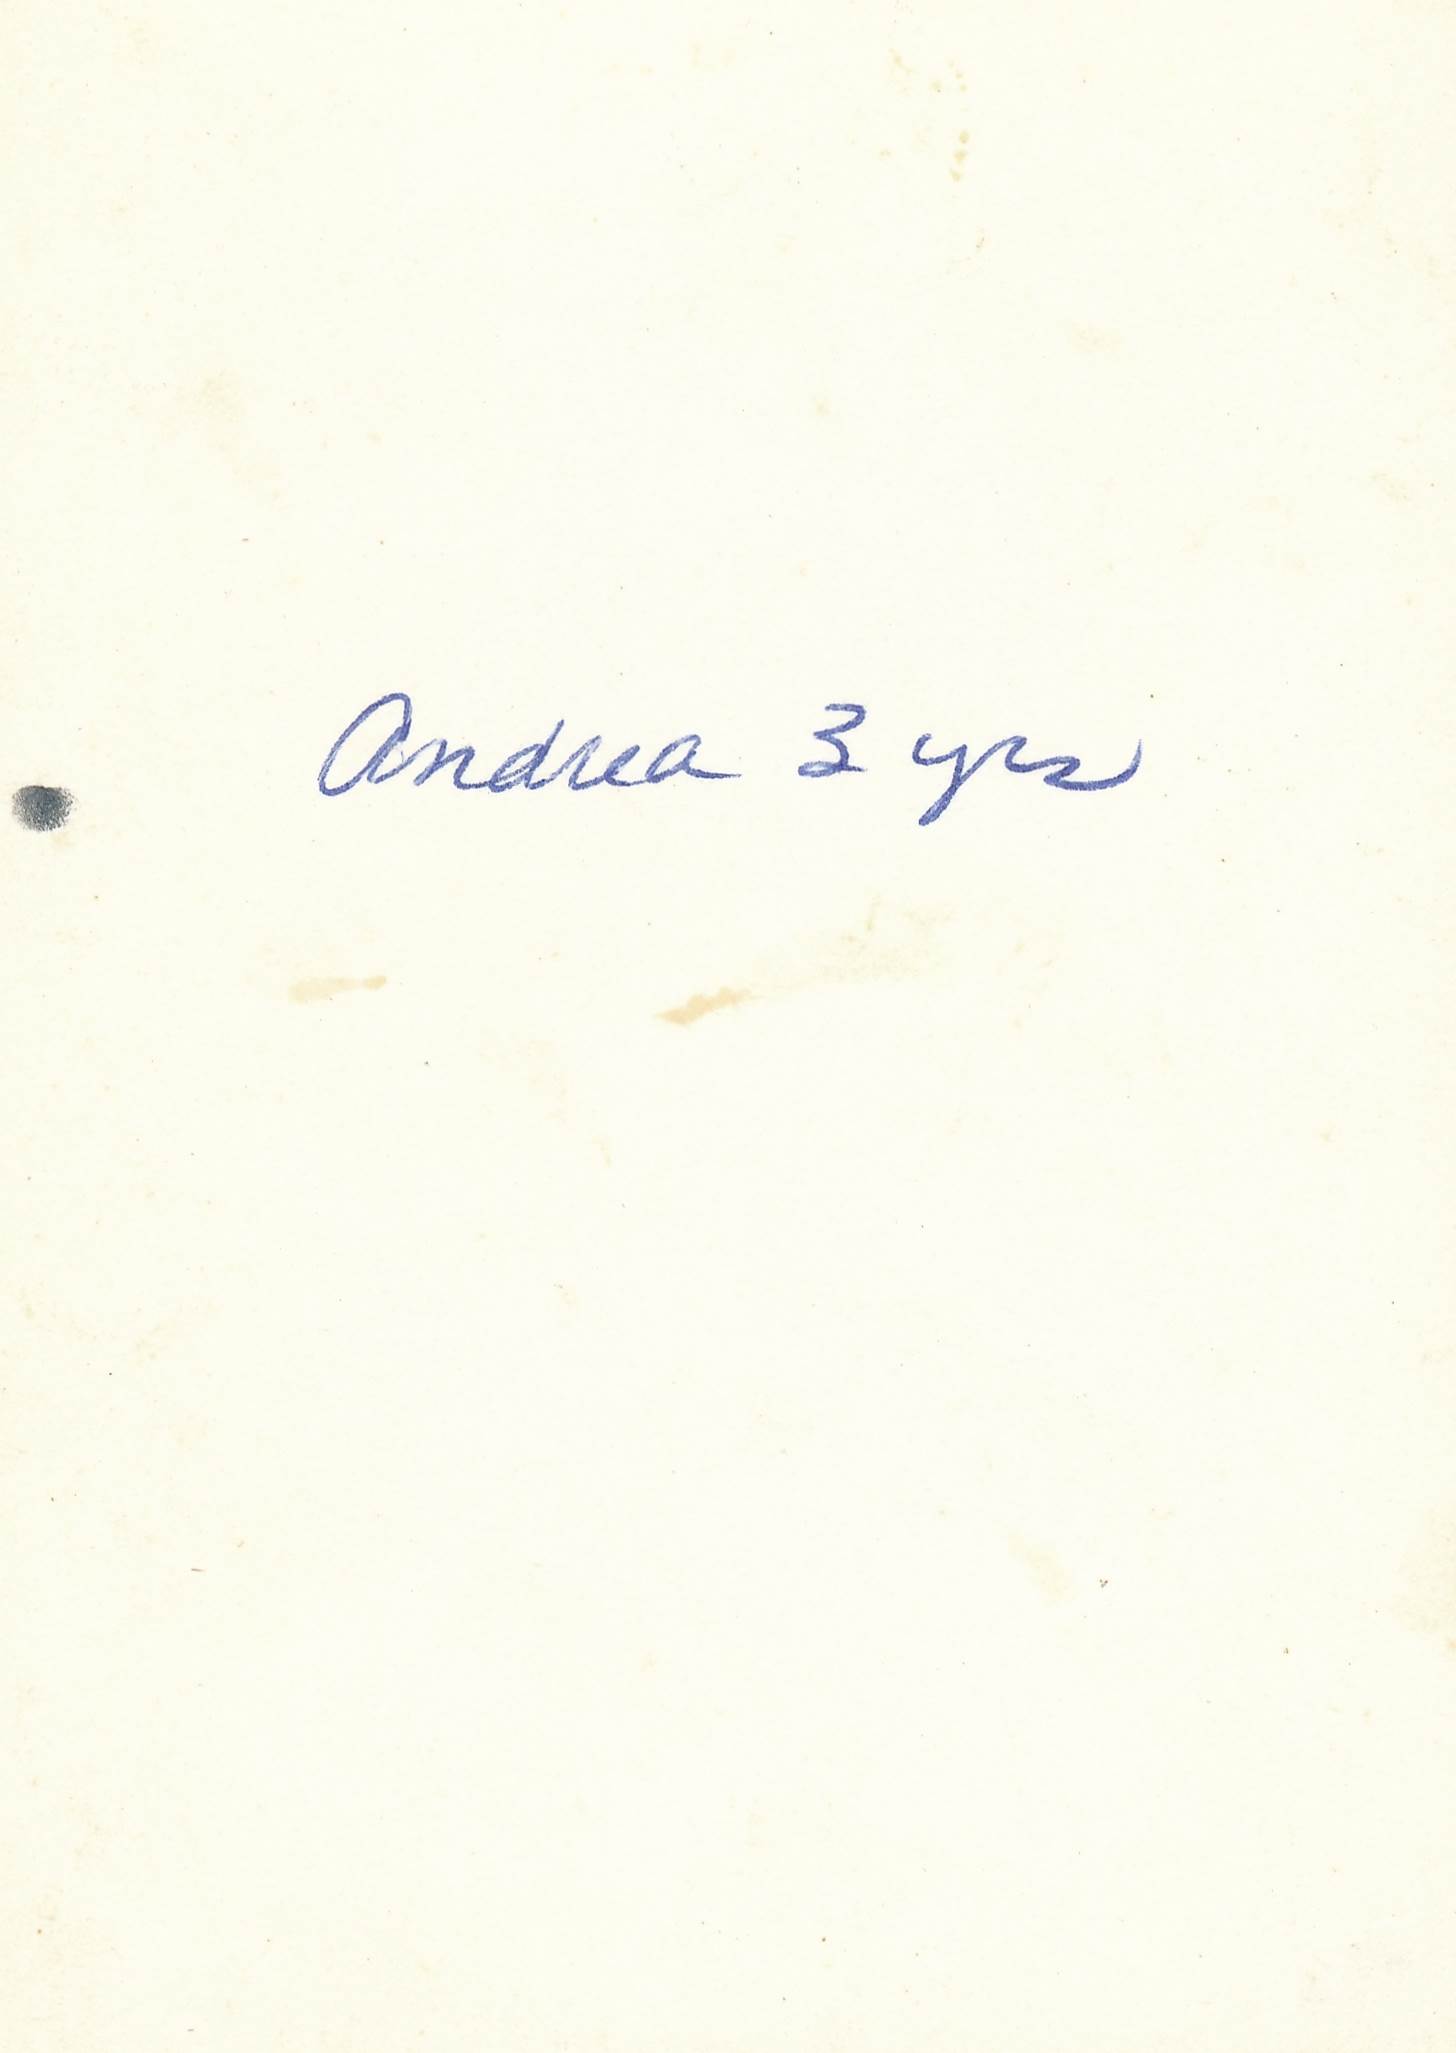 Andrea 3 yrs